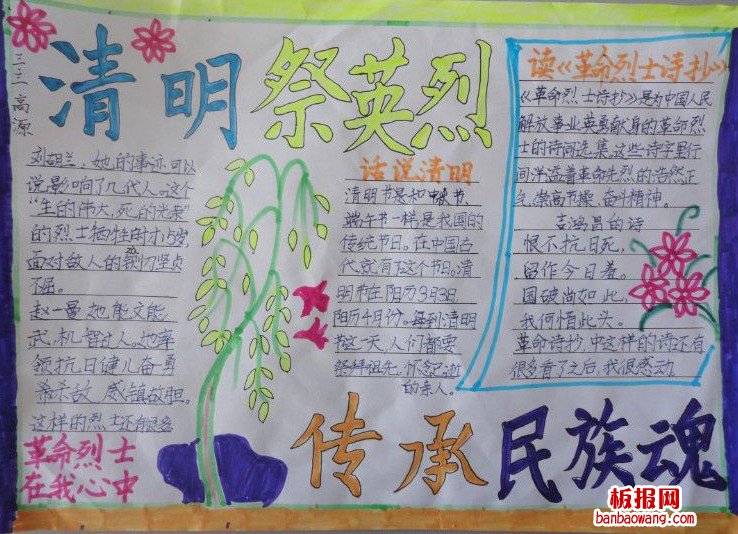 清明祭英烈
三三 高源
刘胡兰，她的事迹可以
说影响了几代人。这个
“生的伟大，死的光荣”
的烈士牺牲时才15岁，
面对敌人的铡刀坚贞
不屈。
赵一曼她能文能
武，机智过人。她率
领抗日健儿奋勇
杀敌，威镇敌胆。
这样的烈士还有很多
革命烈士
在我心中
话说清明
清明节是和中秋节、
端午书一样是我国的
传统节日。在中国古
代就有了这个节日。清
明节在阳历3月3日，
阳历4月份。每到清明
这一天，人们都要
祭拜祖先，怀念逝
的亲人。
读《革命烈士诗抄》
《革命烈士诗抄》是为中国人民
解放事业英勇献身的革命烈
士的诗词选集。这些诗字里行
间洋溢着革命先烈的浩然正
气、崇高节操、奋斗精神。
吉鸿昌的诗
恨不抗日死，
留作今日羞。
国破尚如此，
我何惜此头。
革命诗抄，中这样的诗还有
很多看了之后，我很感动
传承民族魂
板报网
banbaowang.com